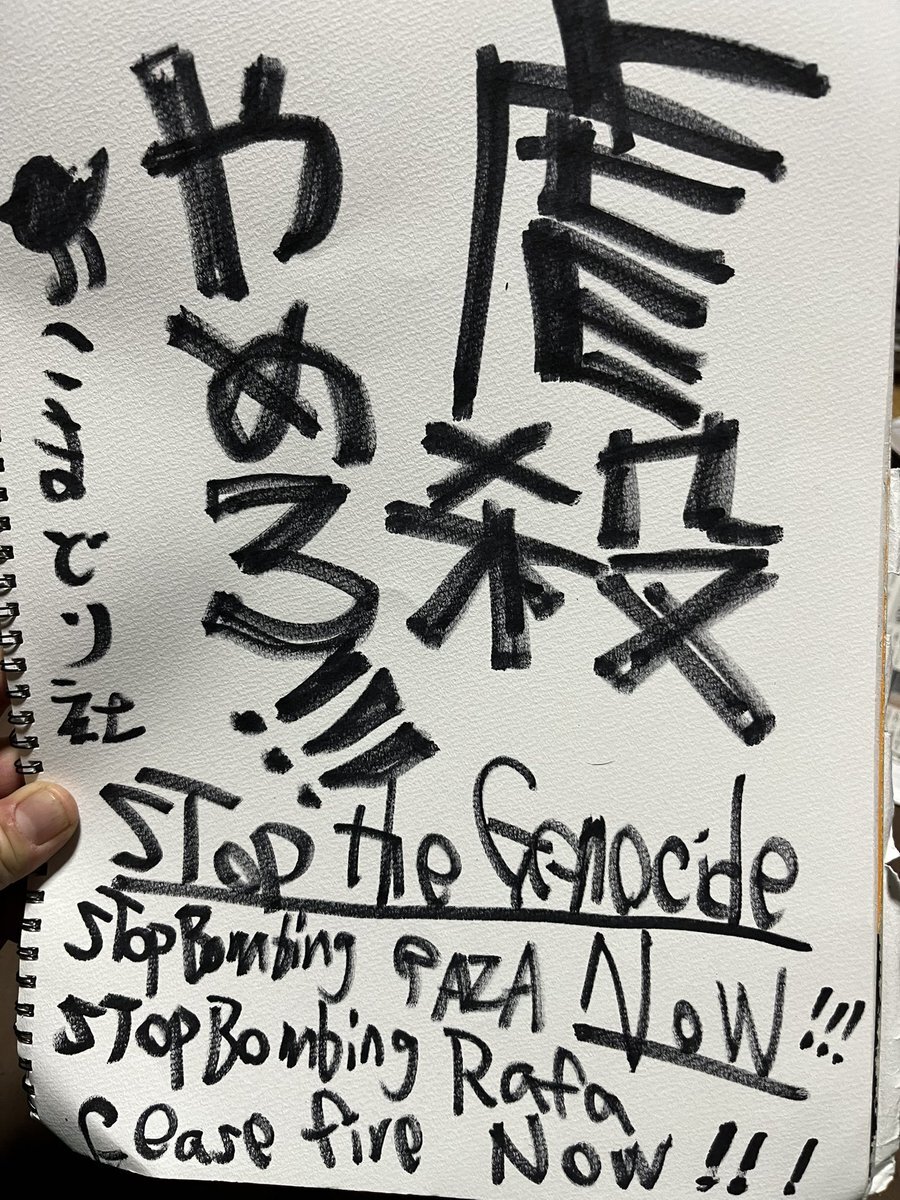 虐殺
やめろ!!!
こまどり社
STop the Genocide
STop Bombing GAZA NoW!!!
STop Bombing Rafa
Cease fire Now!!!